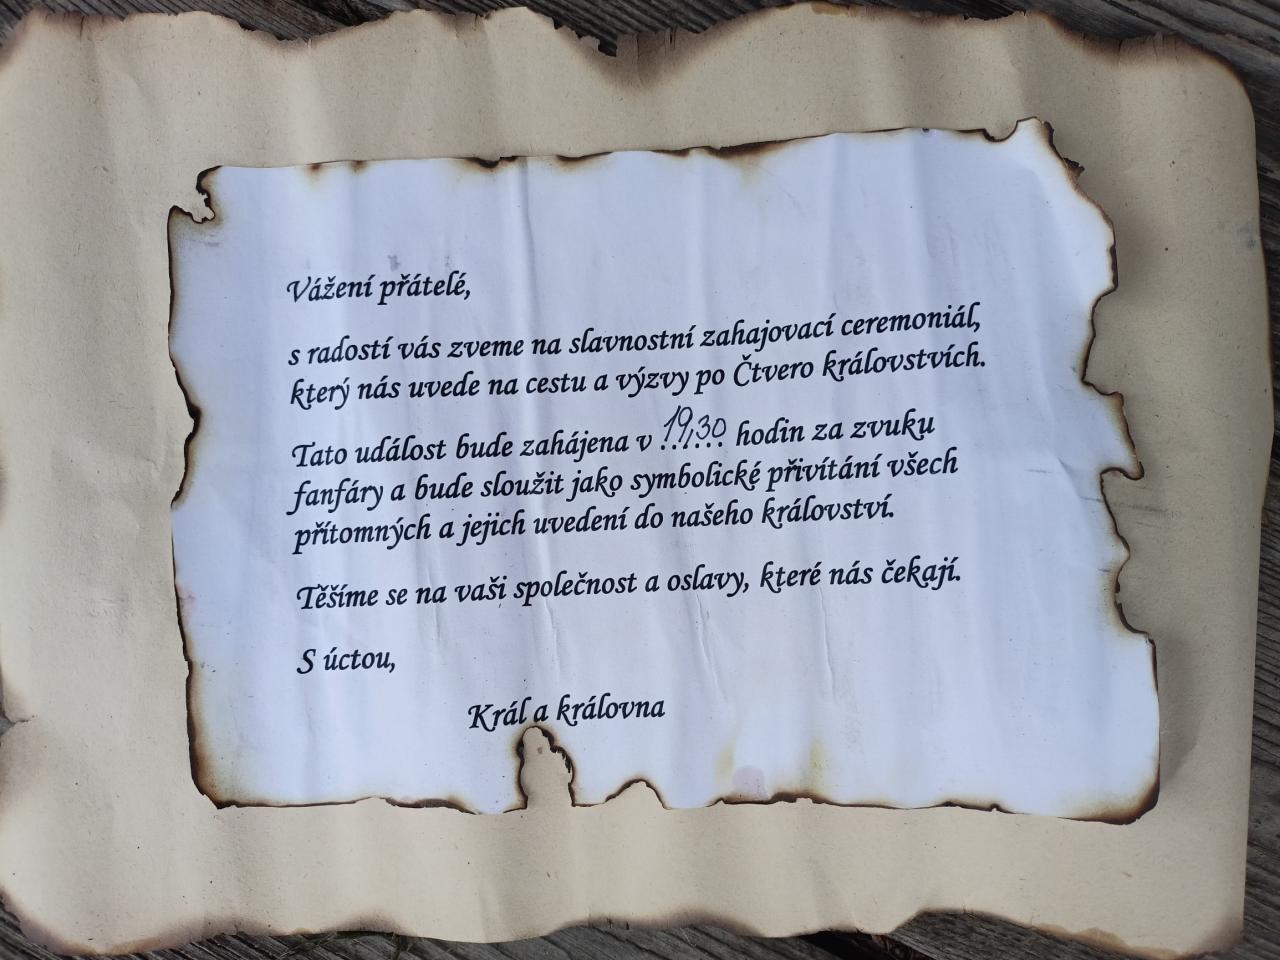 Vážení přátelé,
s radostí vás zveme na slavnostní zahajovací ceremoniál,
který nás uvede na cestu a výzvy po Čtvero královstvích.
Tato událost bude zahájena v 19,30 hodin za zvuku
fanfáry a bude sloužit jako symbolické přivítání všech
přítomných a jejich uvedení do našeho království.
Těšíme se na vaši společnost a oslavy, které nás čekají.
S úctou,
Král a královna